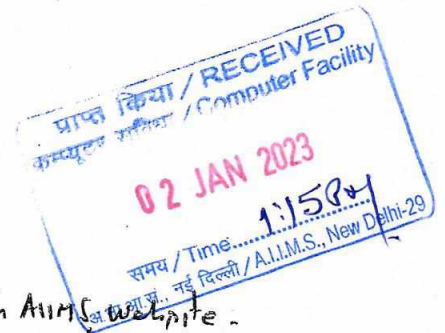 प्राप्त किया / RECEIVED
कम्प्यूटर / Computer Facility
02 JAN 2023
समय / Time.......... 1:15 PM
नई दिल्ली / A.I.I.M.S., New Delhi-29
AIIMS website.